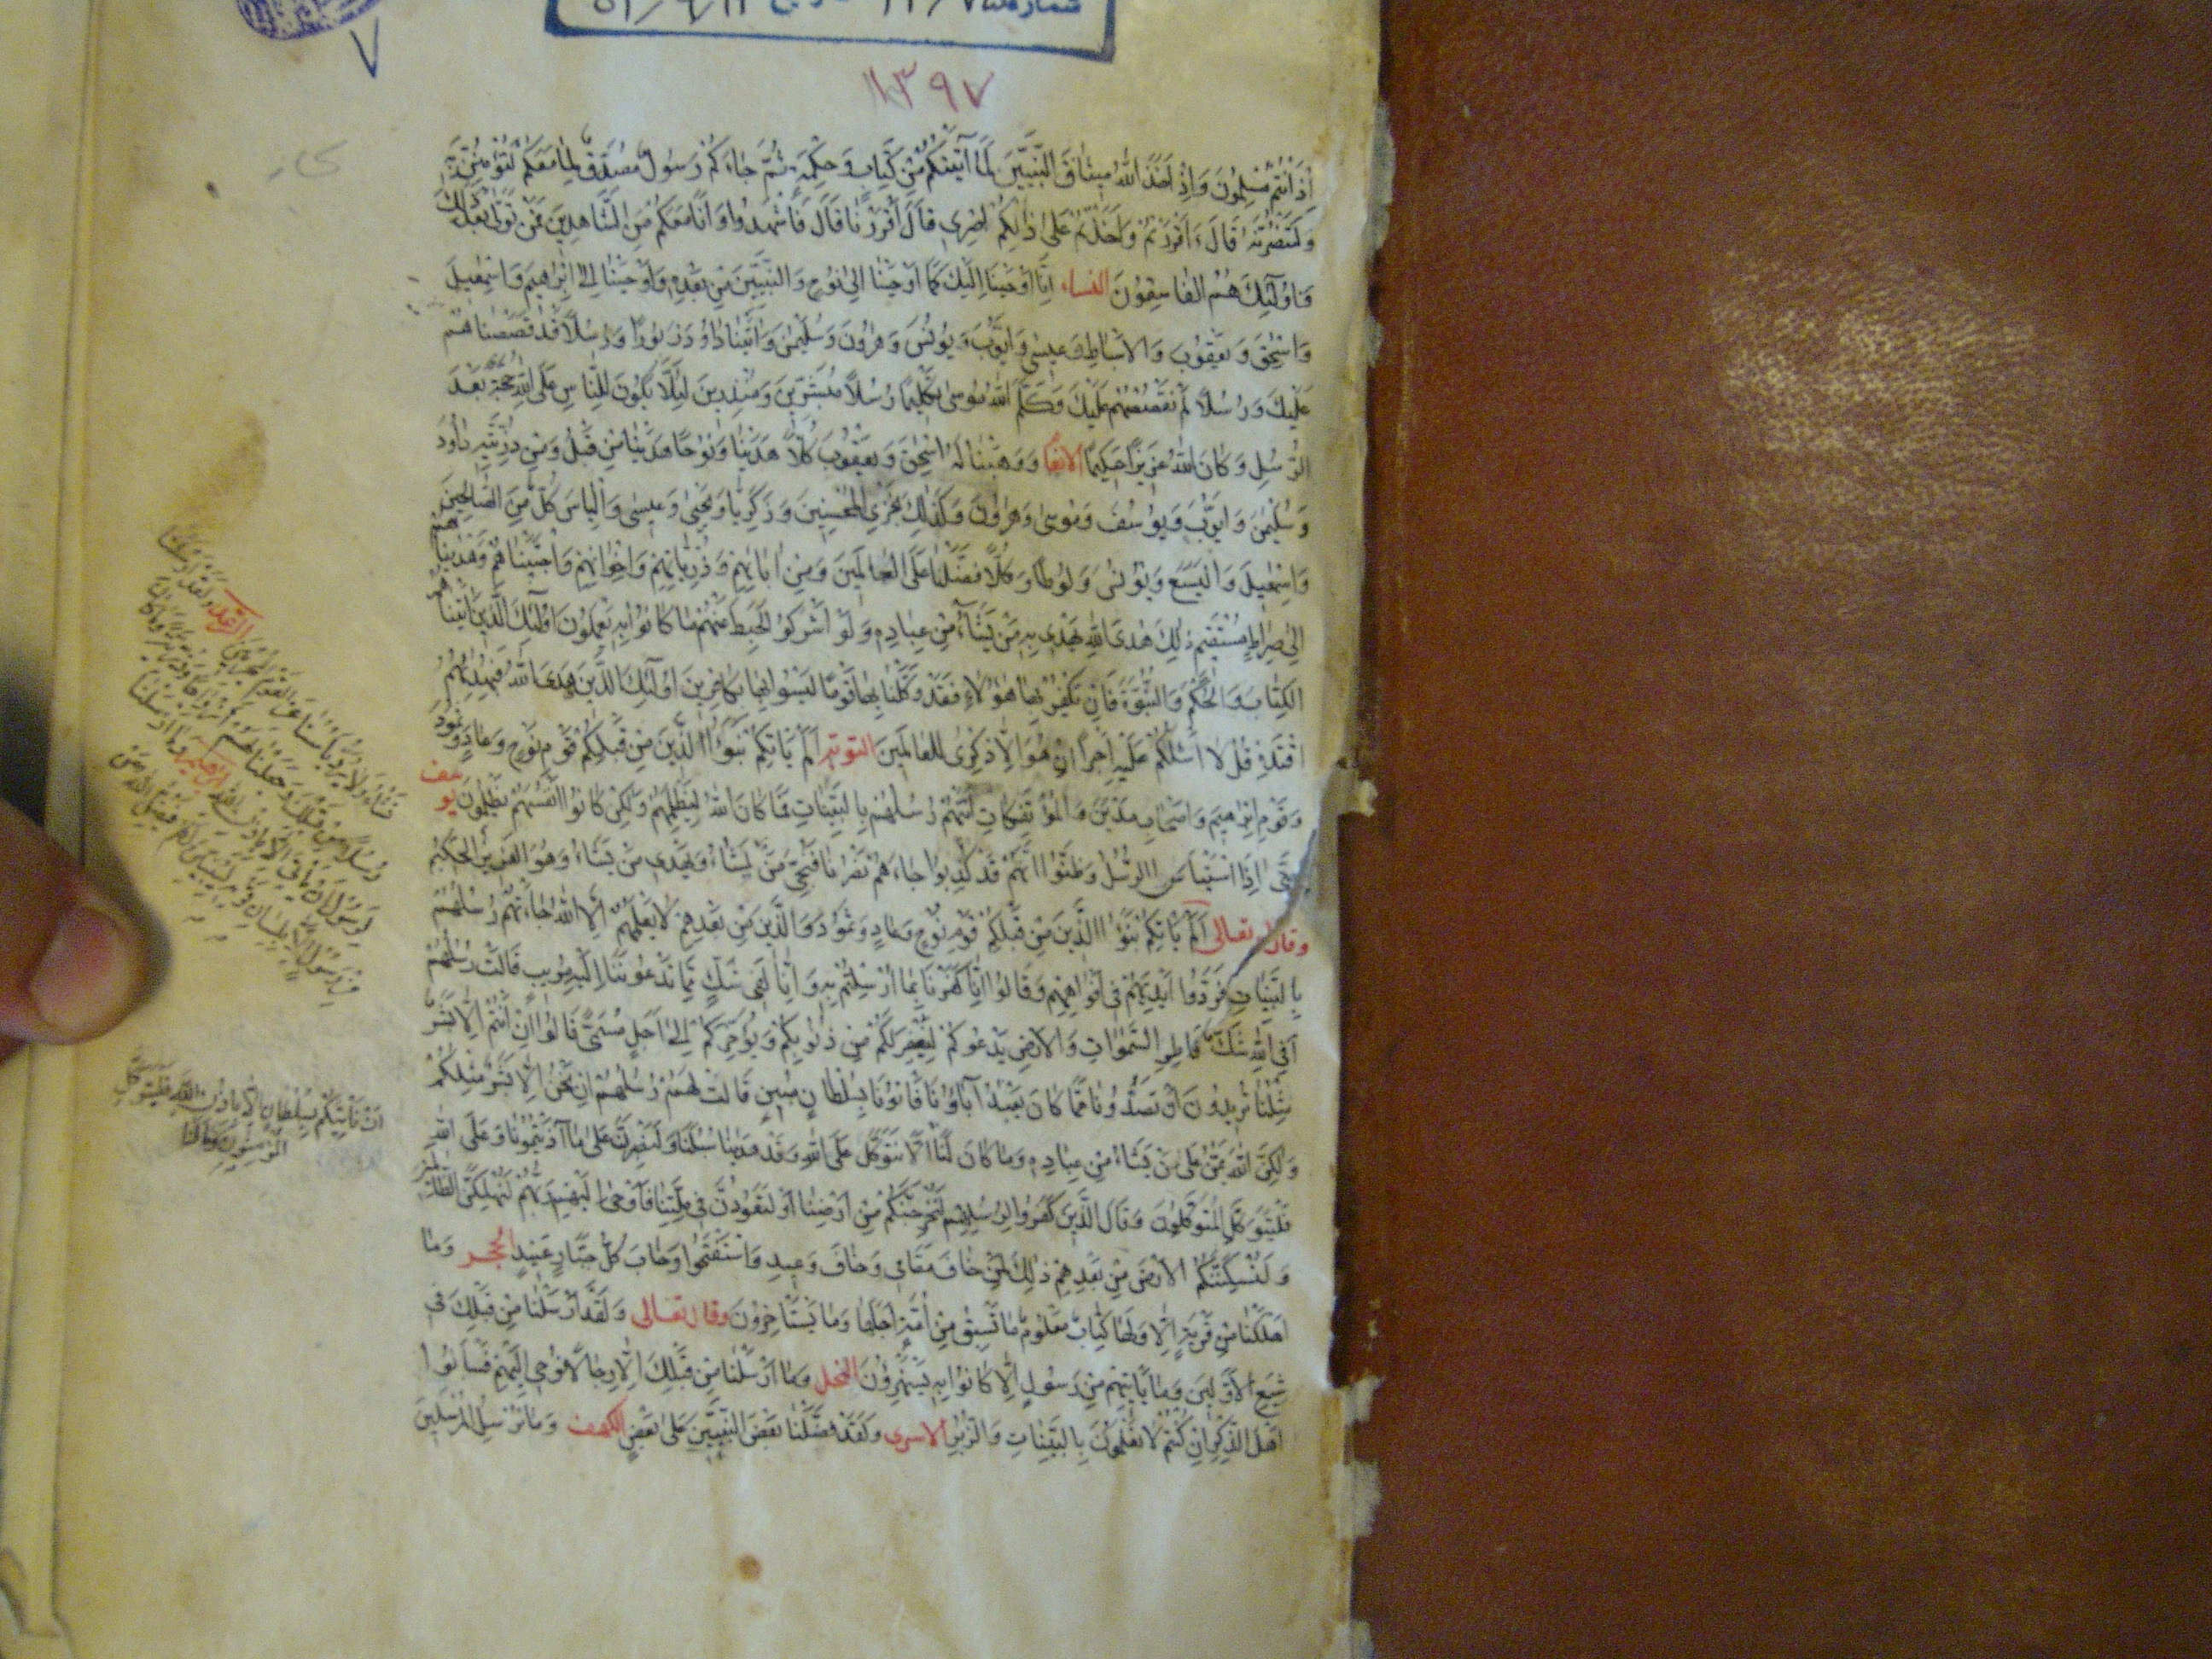 ۱۱۳۹۷
۷
اذ انتم مسلمون و اذ اخذ الله میثاق النبیین لما آتیتکم من کتاب و حکمة ثم جاءکم رسول مصدق لما معکم لتؤمنن به
و لتنصرنه قال ءاقررتم و اخذتم علی ذلکم اصری قال اقررنا قال فاشهدوا و انا معکم من الشاهدین فمن تولی بعد ذلک
فاولئک هم الفاسقون النساء انا اوحینا الیک کما اوحینا الی نوح و النبیین من بعده و اوحینا الی ابرهیم و اسمعیل
و اسحق و یعقوب و الاسباط و عیسی و ایوب و یونس و هرون و سلیمن و اتینا داود زبورا و رسلا قد قصصناهم
علیک و رسلا لم نقصصهم علیک و کلم الله موسی تکلیما رسلا مبشرین و منذرین لئلا یکون للناس علی الله حجة بعد
الرسل و کان الله عزیزا حکیما الانعام و وهبنا له اسحق و یعقوب کلا هدینا و نوحا هدینا من قبل و من ذریته داود
و سلیمن و ایوب و یوسف و موسی و هرون و کذلک نجزی المحسنین و زکریا و یحیی و عیسی و الیاس کل من الصالحین
و اسمعیل و الیسع و یونس و لوطا و کلا فضلنا علی العالمین و من ابائهم و ذریاتهم و اخوانهم و اجتبیناهم و هدیناهم
الی صراط مستقیم ذلک هدی الله یهدی به من یشاء من عباده و لو اشرکوا لحبط عنهم ما کانوا یعملون اولئک الذین اتیناهم
الکتاب و الحکم و النبوة فان یکفر بها هؤلاء فقد وکلنا بها قوما لیسوا بها بکافرین اولئک الذین هدی الله فبهدیهم
اقتده قل لا اسئلکم علیه اجرا ان هو الا ذکری للعالمین التوبة الم یاتکم نبؤا الذین من قبلکم قوم نوح و عاد و ثمود
و قوم ابرهیم و اصحاب مدین و المؤتفکات اتتهم رسلهم بالبینات فما کان الله لیظلمهم و لکن کانوا انفسهم یظلمون یوسف
حتی اذا استیأس الرسل و ظنوا انهم قد کذبوا جاءهم نصرنا فنجی من یشاء و یهدی من یشاء و هو العزیز الحکیم
و قال تعالی الم یاتکم نبؤا الذین من قبلکم قوم نوح و عاد و ثمود و الذین من بعدهم لا یعلمهم الا الله جاءتهم رسلهم
بالبینات فردوا ایدیهم فی افواههم و قالوا انا کفرنا بما ارسلتم به و انا لفی شک مما تدعوننا الیه مریب قالت رسلهم
افی الله شک فاطر السموات و الارض یدعوکم لیغفر لکم من ذنوبکم و یؤخرکم الی اجل مسمی قالوا ان انتم الا بشر
مثلنا تریدون ان تصدونا عما کان یعبد آباؤنا فاتونا بسلطان مبین قالت لهم رسلهم ان نحن الا بشر مثلکم
و لکن الله یمن علی من یشاء من عباده و ما کان لنا الا نتوکل علی الله و قد هدینا سبلنا و لنصبرن علی ما آذیتمونا و علی الله
فلیتوکل المتوکلون و قال الذین کفروا لرسلهم لنخرجنکم من ارضنا او لتعودن فی ملتنا فاوحی الیهم ربهم لنهلکن الظالمین
و لنسکننکم الارض من بعدهم ذلک لمن خاف مقامی و خاف وعید و استفتحوا و خاب کل جبار عنید الحجر و ما
اهلکنا من قریة الا و لها کتاب معلوم ما تسبق من امة اجلها و ما یستاخرون و قال تعالی و لقد ارسلنا من قبلک فی
شیع الاولین و ما یاتیهم من رسول الا کانوا به یستهزؤن النحل و ما ارسلنا من قبلک الا رجالا نوحی الیهم فسألوا
اهل الذکر ان کنتم لا تعلمون بالبینات و الزبر الاسری و لقد فضلنا بعض النبیین علی بعض الکهف و ما نرسل المرسلین
نشاء و لا یرد بأسنا عن القوم المجرمین الرعد و لقد ارسلنا
رسلا من قبلک و جعلنا لهم ازواجا و ذریة و ما کان
لرسول ان یأتی بآیة الا باذن الله ابرهیم و ما ارسلنا
من رسول الا بلسان قومه لیبین لهم فیضل الله من
ان ناتیکم بسلطان الا باذن الله و علی الله فلیتوکل
المؤمنون و ما لنا